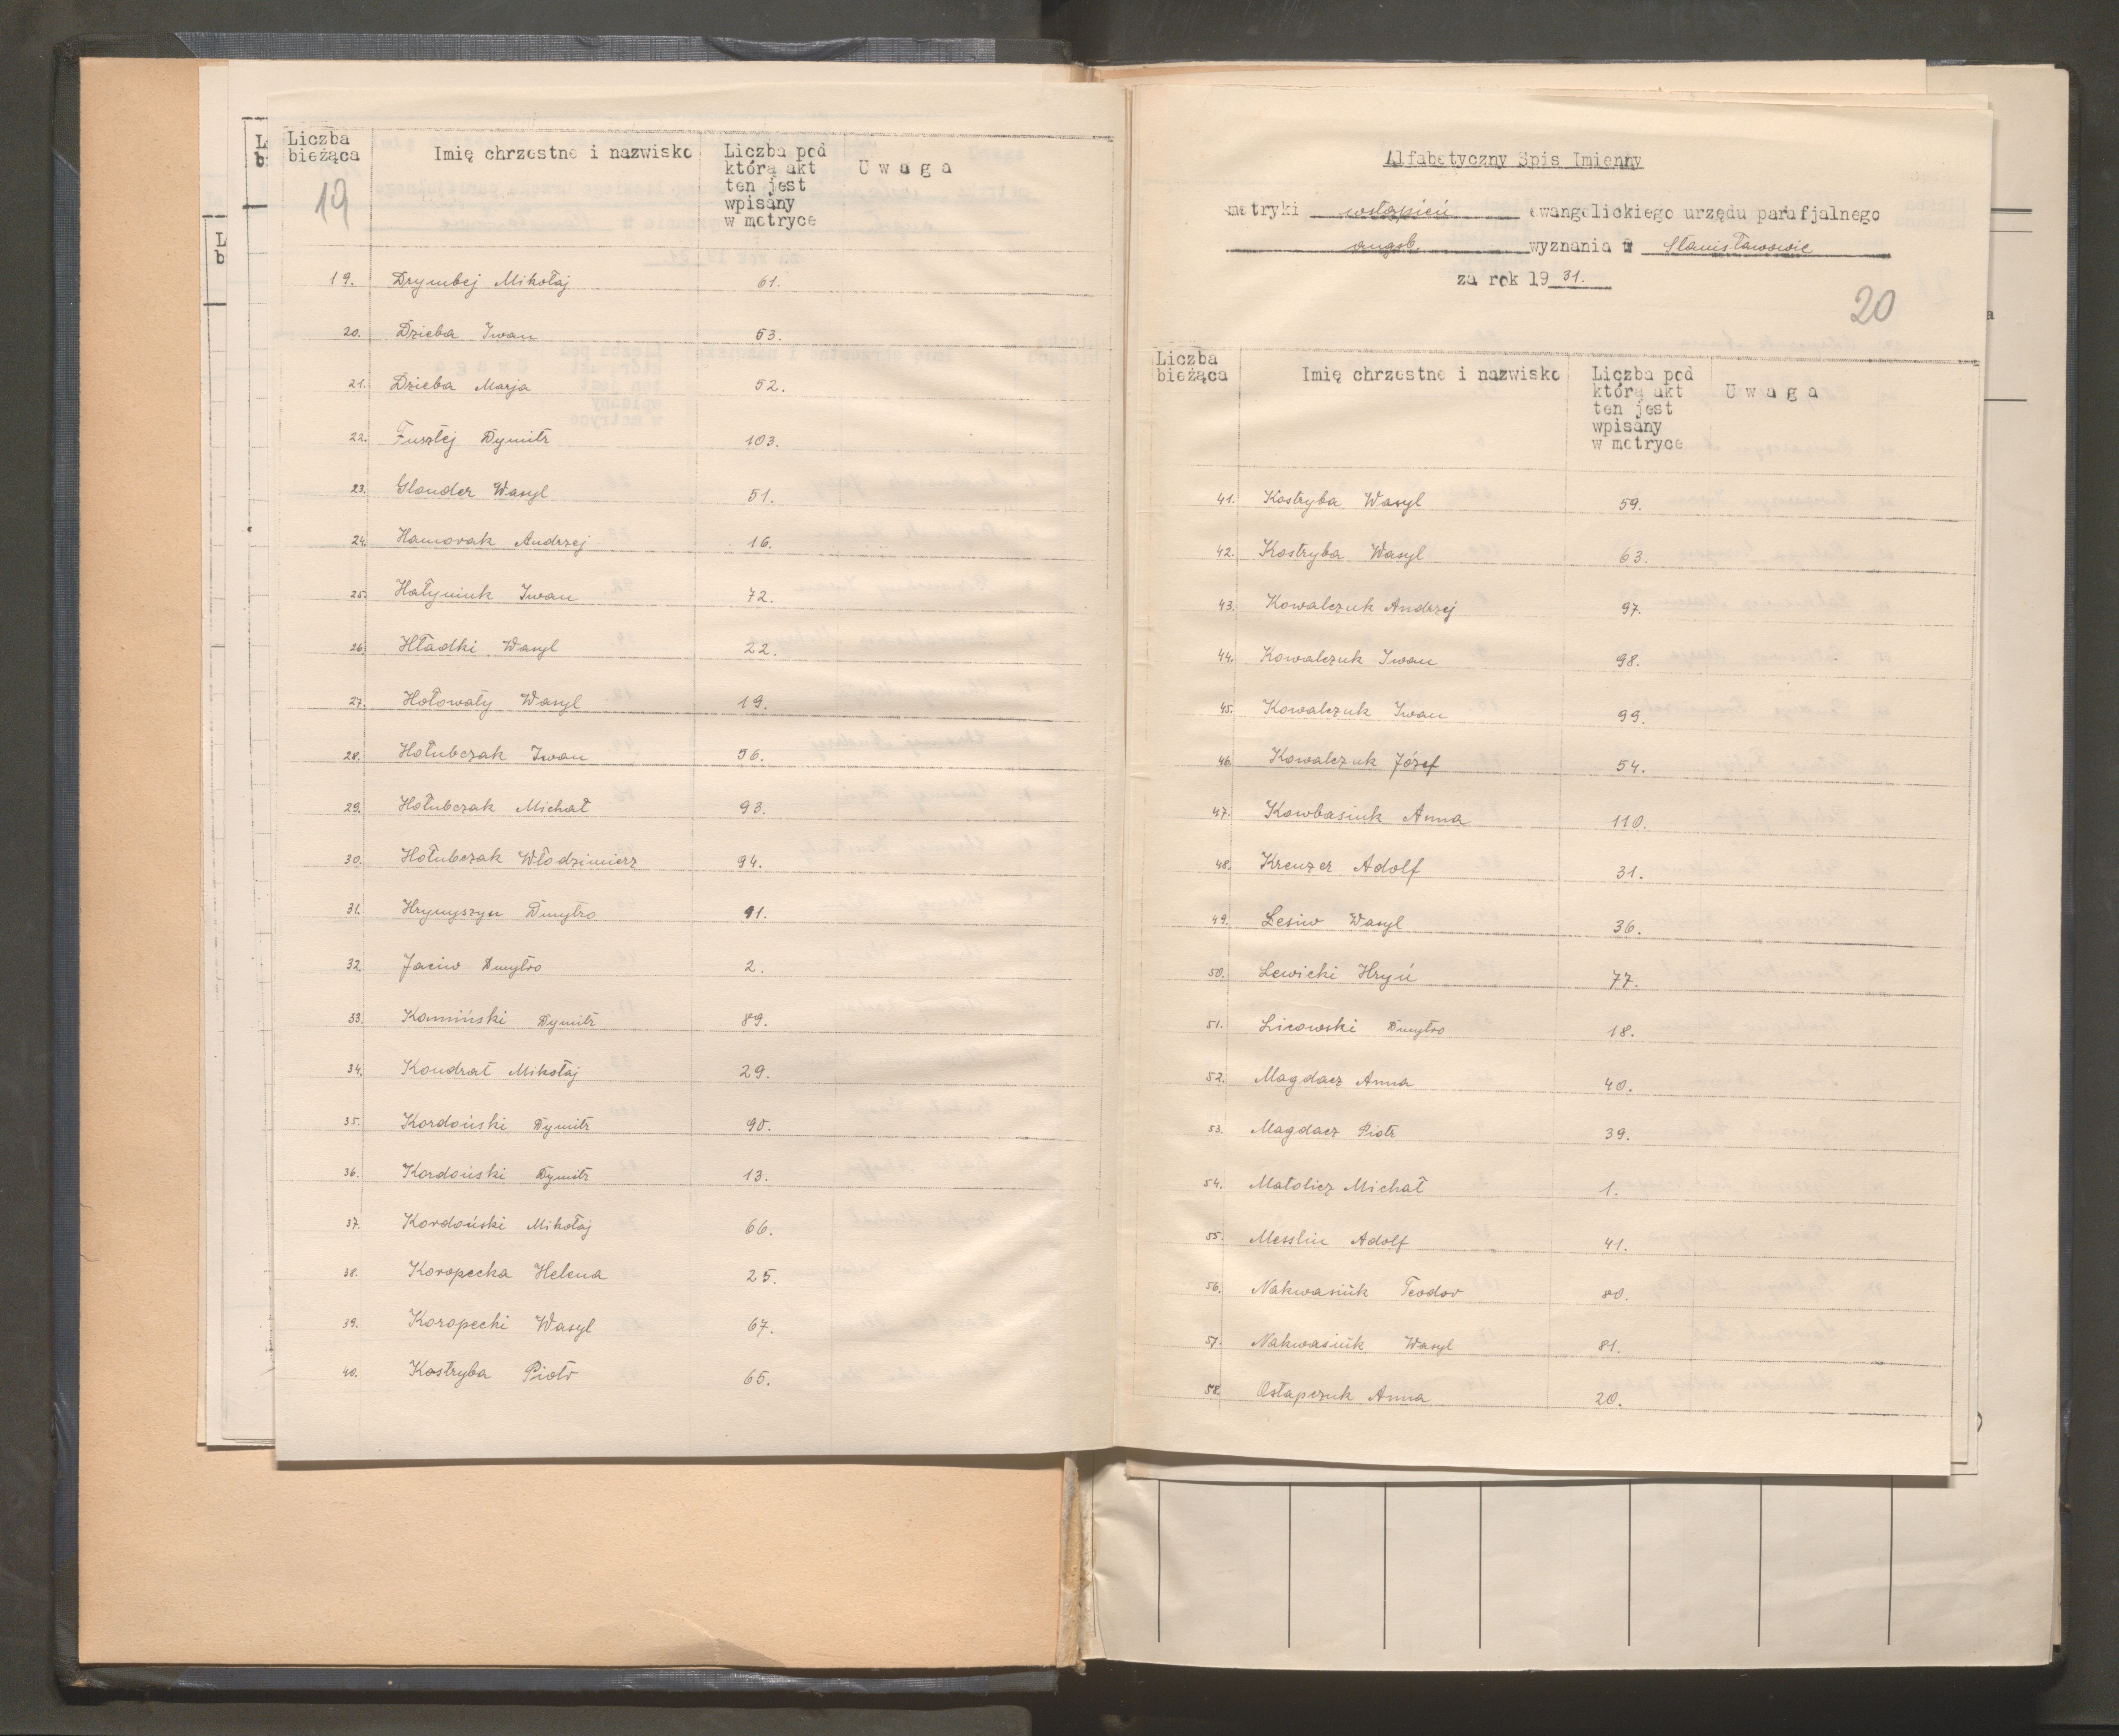 Liczba bieżąca
Imię chrzestne i nazwisko
Liczba pod którą akt ten jest wpisany w metryce
Uwaga
19
19. Drymbej Mikołaj 61.
20. Dzieba Iwan 53.
21. Dzieba Marja 52.
22. Fusztej Dymitr 103.
23. Glouder Wasyl 51.
24. Hamorak Andrzej 16.
25. Hałyniuk Iwan 72.
26. Hładki Wasyl 22.
27. Hołowaty Wasyl 19.
28. Hołubczak Iwan 56.
29. Hołubczak Michał 93.
30. Hołubczak Włodzimierz 94.
31. Hrynyszyn Dmytro 91.
32. Jaciw Dmytro 2.
33. Kamiński Dymitr 89.
34. Kondrat Mikołaj 29.
35. Kordoński Dymitr 90.
36. Kordoński Dymitr 13.
37. Kordoński Mikołaj 66.
38. Koropecka Helena 25.
39. Koropecki Wasyl 67.
40. Kostryba Piotr 65.
Alfabetyczny Spis Imienny
metryki wstąpień ewangelickiego urzędu parafjalnego
augsb. wyznania w Stanisławowie
za rok 1931.
20
Liczba bieżąca
Imię chrzestne i nazwisko
Liczba pod którą akt ten jest wpisany w metryce
Uwaga
41. Kostryba Wasyl 59.
42. Kostryba Wasyl 63.
43. Kowalczuk Andrzej 97.
44. Kowalczuk Iwan 98.
45. Kowalczuk Iwan 99.
46. Kowalczuk Józef 54.
47. Kowbasiuk Anna 110.
48. Kreuzer Adolf 31.
49. Lesiw Wasyl 36.
50. Lewicki Hryń 77.
51. Licowski Dmytro 18.
52. Magdacz Anna 40.
53. Magdacz Piotr 39.
54. Matolicz Michał 1.
55. Messlin Adolf 41.
56. Nakwasiuk Teodor 80.
57. Nakwasiuk Wasyl 81.
58. Ostapczuk Anna 20.